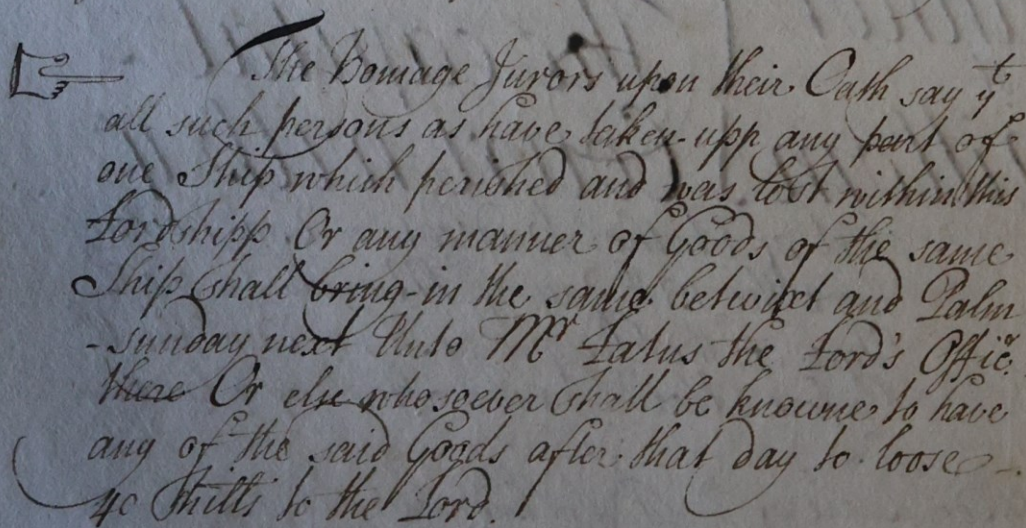 The Homage Jurors upon their Oath say yt
all such persons as have taken-upp any part of
one Ship which perished and was lost within this
Lordshipp Or any manner of Goods of the same
Ship shall bring-in the same betwixt and Palm
-sunday next Unto Mr Latus the Lord's Officr.
there Or else whosoever shall be knowne to have
any of the said Goods after that day to loose -.
40 shills to the Lord.